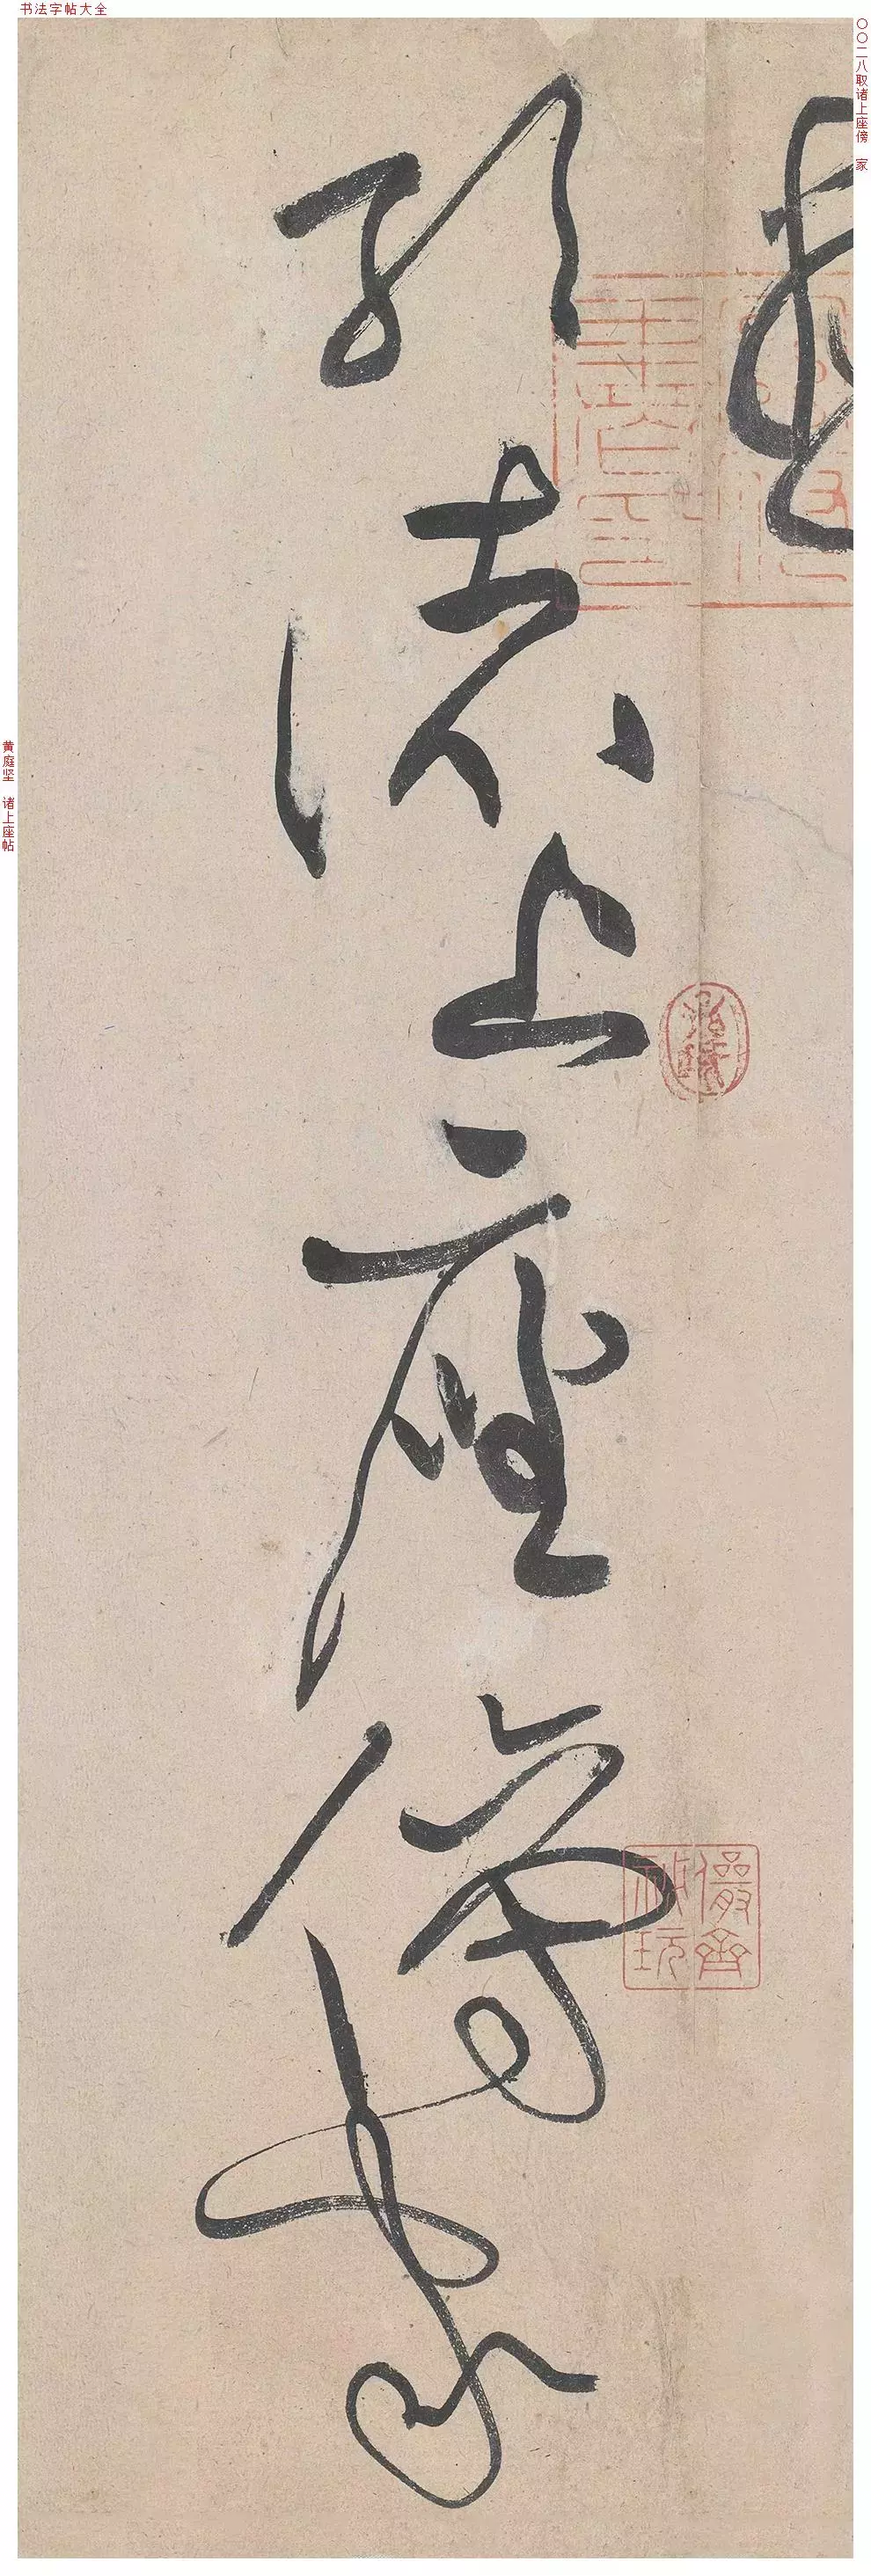 书法字帖大全
〇〇二八取诸上座傍 家
取諸上座傍家
儼齋秘玩
黄庭坚 诸上座帖